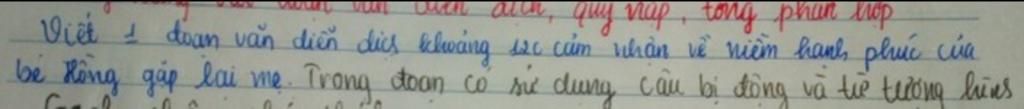 đoạn văn diễn dịch, quy nạp, tổng phân hợp
Viết 1 đoạn văn diễn dịch khoảng 12c cảm nhận về niềm hạnh phúc của
bé Hồng gặp lại mẹ. Trong đoạn có sử dụng câu bị động và từ tượng hình